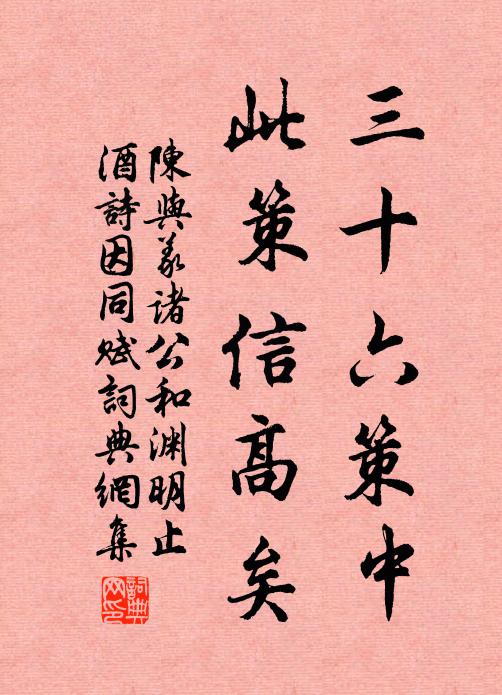 三十六策中
此策信高矣
陳與義諸公和淵明止
酒詩因同賦詞典網集
詞典網印